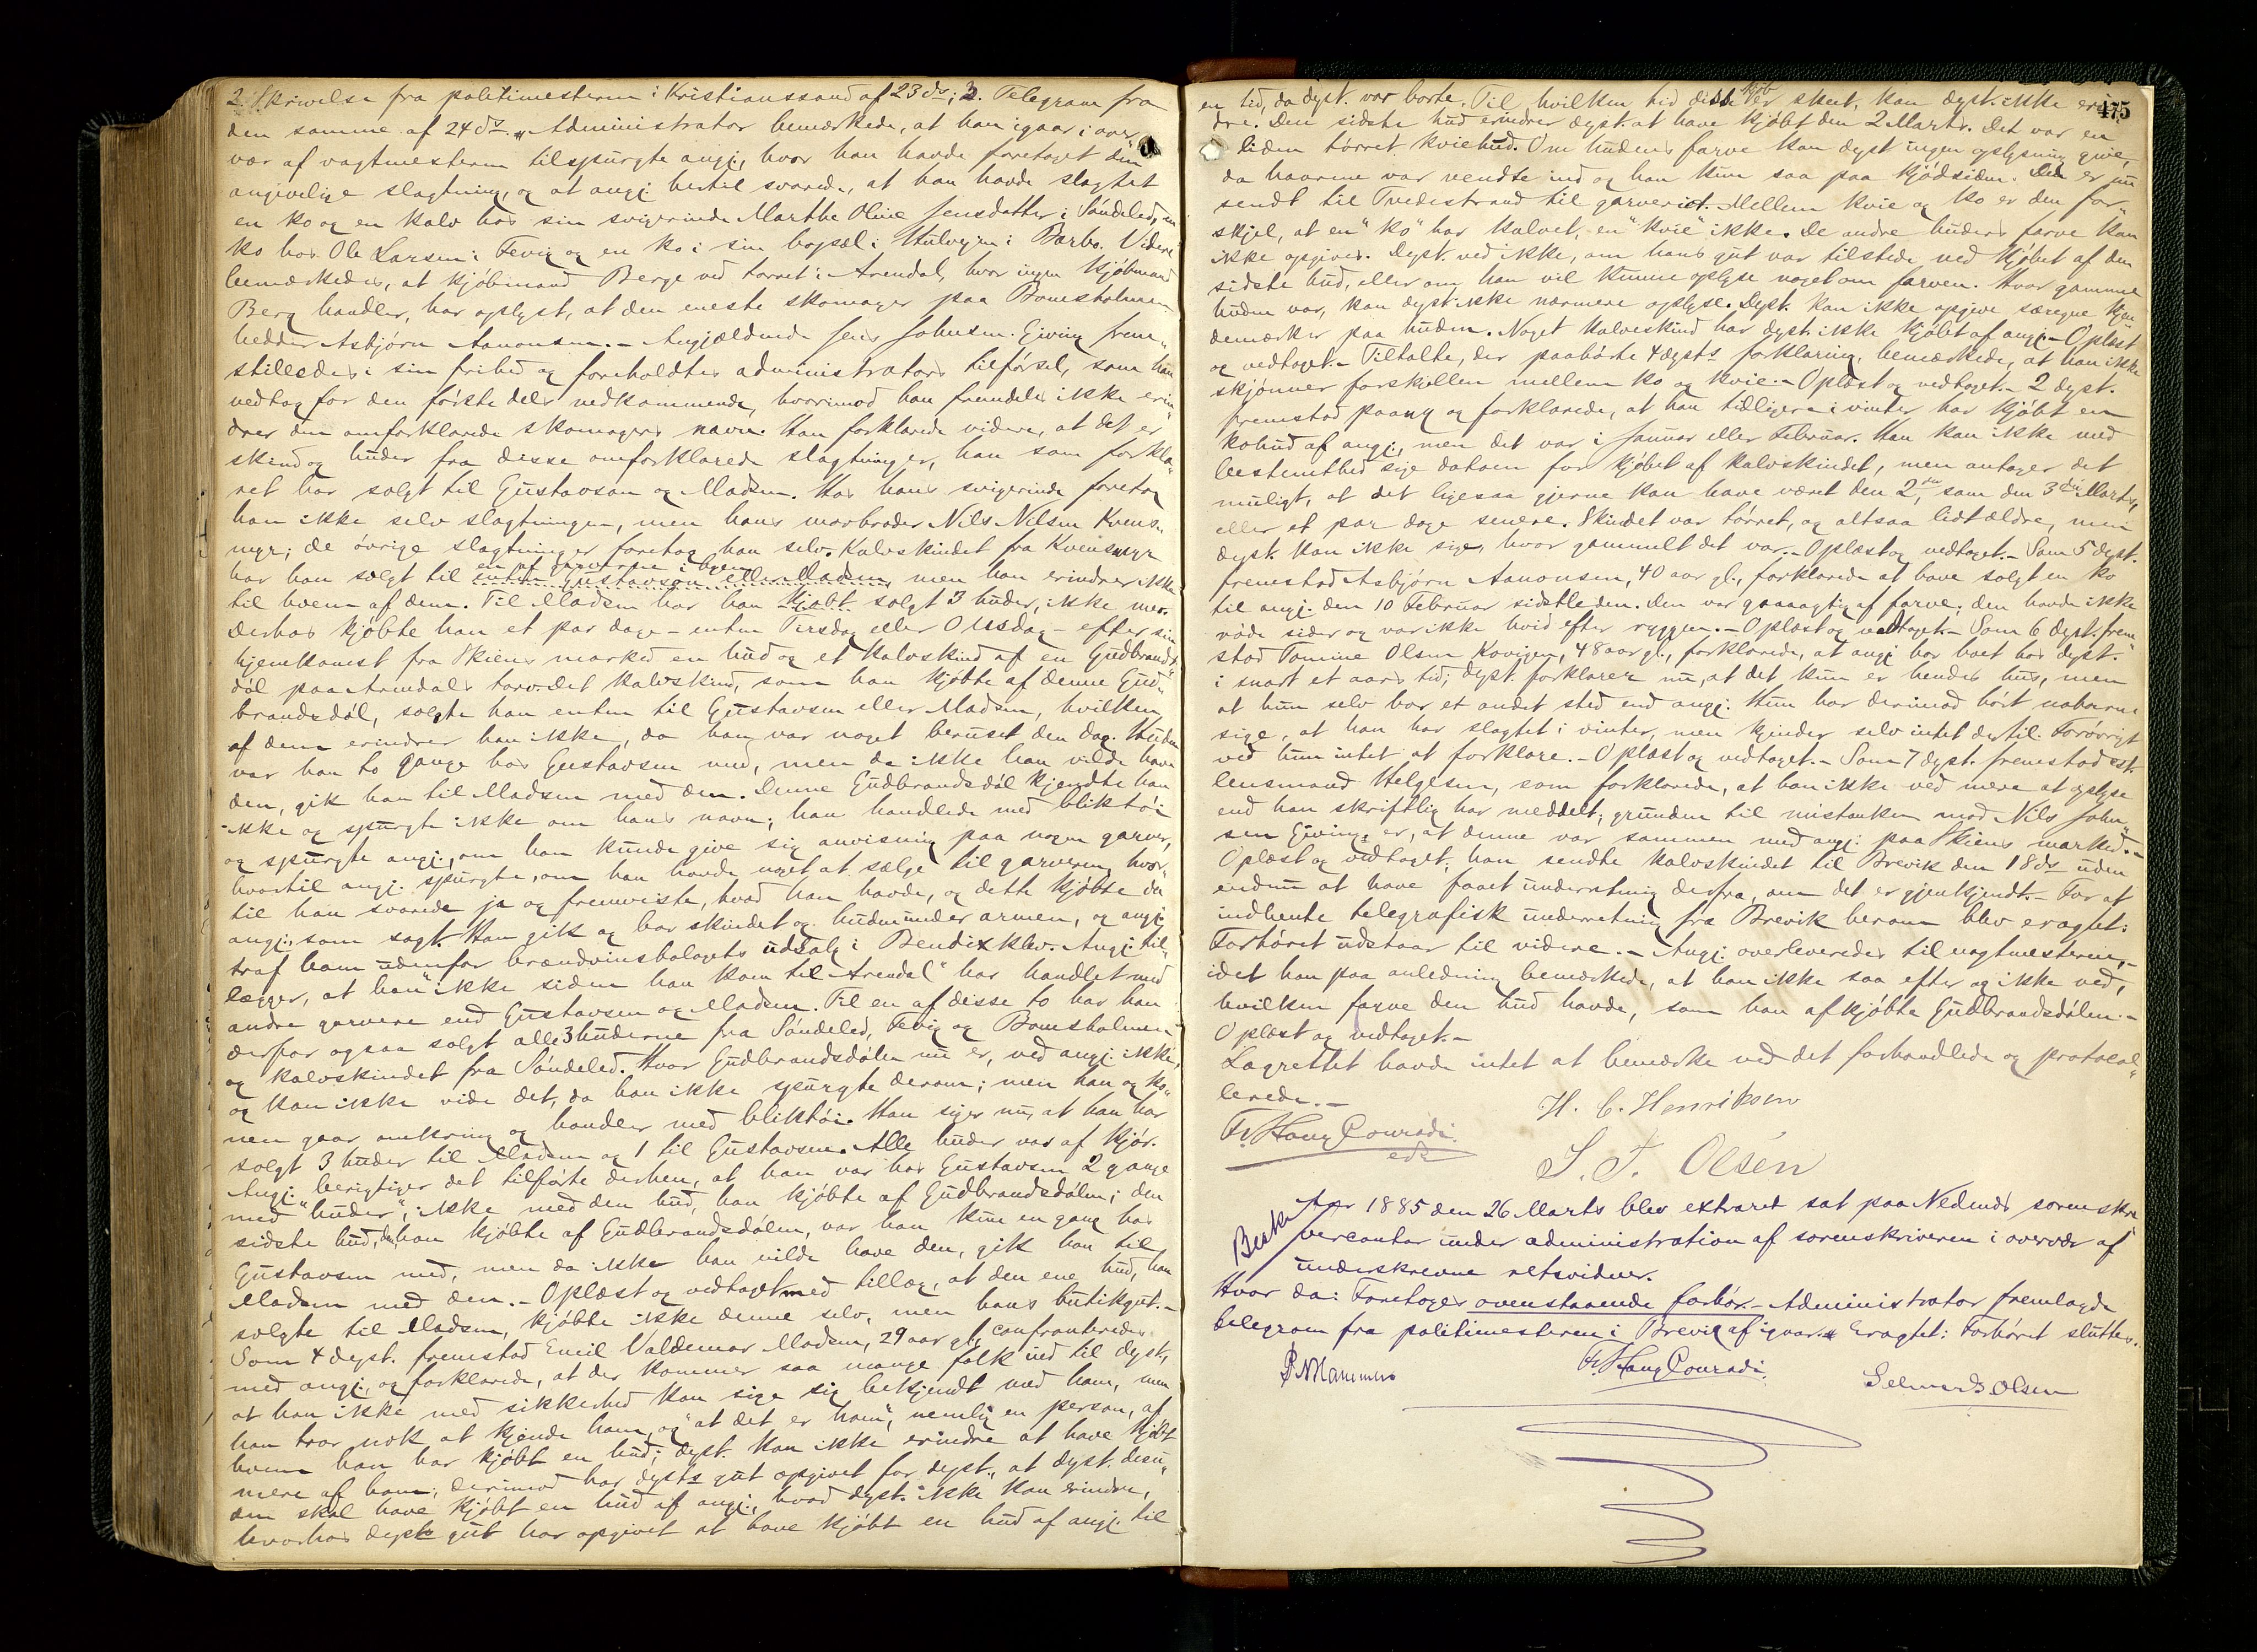 2. Skrivelse fra politimesteren i Kristianssand af 23 ds; 3. Telegram fra
den samme af 24 ds. Administrator bemærkede, at han igaar i over„
vær af vagtmesteren tilspurgte angj., hvor han havde foretaget den
angivelige slagtning, og at angj hertil svarede, at han havde slagtet
en ko og en kalv hos sin svigerinde Marthe Oline Jensdatter i Söndeled, en
ko hos Ole Larsen i Fevig og en ko i sin bopæl i Hulvejen i Barbo. Videre
bemærkedes, at kjöbmand Berge ved torvet i Arendal, hvor ingen kjöbmand
Berg handler, har oplyst, at den eneste skomager paa Bomesholmen
hedder Asbjörn Aanonsen. - Angjældende Jens Johnsen Gjving frem„
stilledes i sin frihed og foreholdtes administrators tilförsel, som han
vedtog for den förste dels vedkommende, hvorimod han fremdeles ikke erin„
drer den omforklarede skomagers navn. Han forklarede videre, at det er
skind og huder fra disse omforklarede slagtninger, han som forkla„
ret har solgt til Gustavson og Madsen. Hos hans svigerinde foretog
han ikke selv slagtningen, men hans morbroder Nils Nilsen Kvens„
myr; de övrige slagtninger foretog han selv. Kalvskindet fra Kvensmyr
har han solgt til en af garverne i byen enten Gustavson eller Madsen, men han erindrer ikke
til hvem af dem. Til Madsen har han kjöbt solgt 3 huder, ikke mer.
Derhos kjöbte han et par dage - enten Tirsdag eller Onsdag - efter sin
hjemkomst fra Skiens marked en hud og et kalvskind af en Gudbrands„
döl paa Arendals torv. Det kalvskind, som han kjöbte af denne Gud„
brandsdöl, solgte han enten til Gustavsen eller Madsen, hvilken
af dem erindrer han ikke, da han var noget beruset den dag. Huden
var han to gange hos Gustavsen med, men da ikke han vilde have
den, gik han til Madsen med den. Denne Gudbrandsdöl kjendte han
ikke og spurgte ikke om hans navn; han handlede med bliktöi
og spurgte angj., om han kunde give sig anvisning paa nogen garver,
hvortil angj. spurgte, om han havde noget at sælge til garveren, hvor„
til han svarede ja og fremviste, hvad han havde, og dette kjöbte da
angj. som sagt. Han gik og bar skindet og huden under armen, og angj.
traf ham udenfor brændvinsbolagets udsalg i Bendixklev. Angj. til„
lægger, at han "ikke siden han kom til Arendal" har handlet med
andre garvere end Gustavsen og Madsen. Til en af disse to har han
derfor ogsaa solgt alle 3 huderne fra Söndeled, Fevig og Bomesholmen
og kalvskindet fra Söndeled. Hvor Gudbrandsdölen nu er, ved angj. ikke,
og kan ikke vide det, da han ikke spurgte derom; men han og ko„
nen gaar omkring og handler med bliktöi. Han siger nu, at han har
solgt 3 huder til Madsen og 1 til Gustavsen. Alle huder var af kjör.
Angj. berigtiger det tilförte derhen, at han var hos Gustavsen 2 gange
med "huder", ikke med den hud, han kjöbte af Gudbrandsdölen; den
sidste hud, den han kjöbte af Gudbrandsdölen, var han kun en gang hos
Gustavsen med, men da ikke han vilde have den, gik han til
Madsen med den. - Oplæst og vedtaget med tillæg, at den ene hud, han
solgte til Madsen, kjöbte ikke denne selv, men hans butikgut. -
Som 4 dept. fremstod Emil Valdemar Madsen, 29 aar gl., confronteredes
med angj. og forklarede, at der kommer saa mange folk ind til dept.,
at han ikke med sikkerhed kan sige sig bekjendt med ham, men
han tror nok at kjende ham, og "at det er ham", nemlig en person, af
hvem han har kjöbt en hud; dept. kan ikke erindre at have kjöbt
mere af ham; derimod har depts gut opgivet for dept., at dept. desu„
den skal have kjöbt en hud af angj., hvad dept. ikke kan erindre,
hvorhos depts gut har opgivet at have kjöbt en hud af angj. til
475
en tid, da dept. var borte. Til hvilken tid disse kjöb er skeet, kan dept. ikke erin„
dre. Den sidste hud erindrer dept. at have kjöbt den 2 Marts. Det var en
liden törret kviehud. Om hudens farve kan dept ingen oplysning give,
da haarene var vendte ind og han kun saa paa kjödsiden. Den er nu
sendt til Tvedestrand til garveriet. Mellem kvie og ko er den for„
skjel, at en "ko" har kalvet, en "kvie" ikke. De andre huders farve kan
ikke opgives. Dept. ved ikke, om hans gut var tilstede ved kjöbet af den
sidste hud, eller om han vil kunne oplyse noget om farven. Hvor gammel
huden var, kan dept. ikke nærmere oplyse. Dept. kan ikke opgive særegne kjen„
demærker paa huden. Noget kalveskind har dept. ikke kjöbt af angj. - Oplæst
og vedtaget. - Tiltalte, der paahörte 4 depts forklaring, bemærkede, at han ikke
skjönner forskjellen mellem ko og kvie. - Oplæst og vedtaget. - 2 dept.
fremstod paany og forklarede, at han tidligere i vinter har kjöbt en
kohud af angj., men det var i Januar eller Februar. Han kan ikke med
bestemthed sige datoen for kjöbet af kalvskindet, men antager det
muligt, at det ligesaa gjerne kan have været den 2den som den 3die Marts,
eller et par dage senere. Skindet var törret, og altsaa lidt ældre, men
dept. kan ikke sige, hvor gammelt det var. - Oplæst og vedtaget. - Som 5 dept.
fremstod Asbjörn Aanonsen, 40 aar gl., forklarede at have solgt en ko
til angj. den 10 Februar sidstleden. Den var graaagtig af farve; den havde ikke
röde sider og var ikke hvid efter ryggen. - Oplæst og vedtaget. - Som 6 dept. frem„
stod Tomine Olsen Kovigen, 48 aar gl., forklarede, at angj har boet hos dept.
i snart et aars tid; dept. forklarer nu, at det kun er hendes hus, men
at hun selv bor et andet sted end angj. Hun har derimod hört naboerne
sige, at han har slagtet i vinter, men kjender selv intet dertil. Forövrigt
ved hun intet at forklare. - Oplæst og vedtaget. - Som 7 dept. fremstod cst.
lensmand Helgesen, som forklarede, at han ikke ved mere at oplyse
end han skriftlig har meddelt; grunden til mistanken mod Nils John„
sen Gjving er, at denne var sammen med angj. paa Skiens marked. -
Oplæst og vedtaget; han sendte kalvskindet til Brevik den 18 ds uden
endnu at have faaet underretning derfra, om det er gjenkjendt. - For at
indhente telegrafisk underretning fra Brevik herom blev eragtet:
Forhöret udstaar til videre. - Angj. overleveredes til vagtmesteren, -
idet han paa anledning bemærkede, at han ikke saa efter og ikke ved,
hvilken farve den hud havde, som han afkjöbte Gudbrandsdölen. -
Oplæst og vedtaget. -
Lagrettet havde intet at bemærke ved det forhandlede og protocol„
lerede. -
H. C. Henriksen
Fr. Haug Conradi
eds
S. T. Olsen
Besk.
Aar 1885 den 26 Marts blev extraret sat paa Nedenes sorenskri„
vercontor under administration af sorenskriveren i overvær af
underskrevne retsvidner.
Hvor da: Foretoges ovenstaaende forhör. - Administrator fremlagde
telegram fra politimesteren i Brevig af igaar. Eragtet: Forhöret sluttes.
Fr. Haug Conradi
Selmer B. Olsen